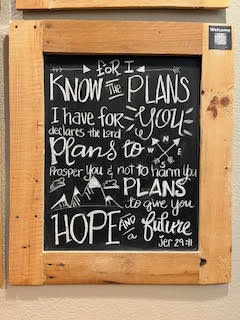 Welcome
for I
KNOW the PLANS
I have for YOU
declares the Lord
Plans to
N W E S
Prosper You & not to harm You
PLANS
to give you
HOPE AND a future
Jer 29:11